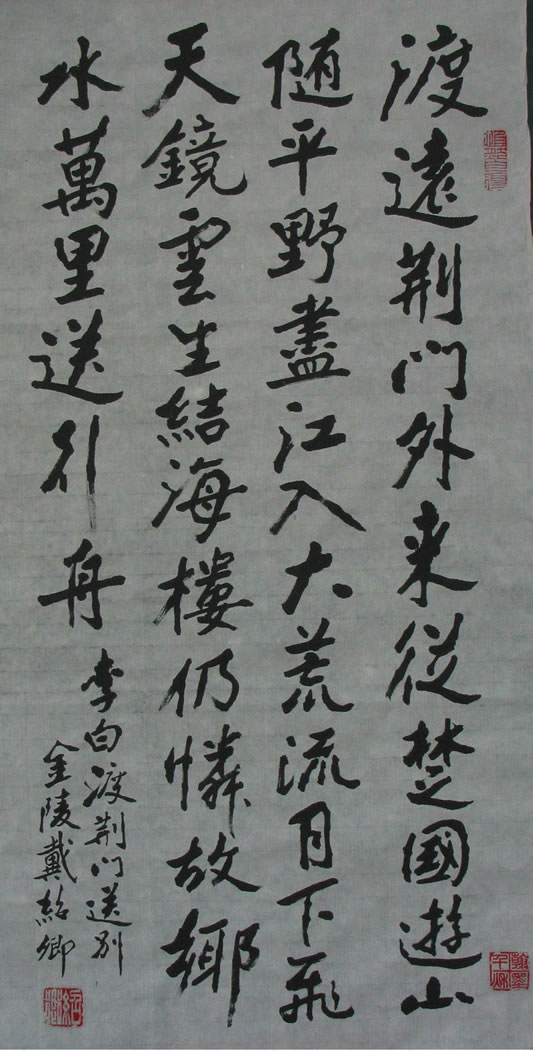 渡遠荆門外来從楚國遊山
随平野盡江入大荒流月下飛
天鏡雲生結海樓仍憐故鄉
水萬里送行舟
李白渡荆門送别
金陵戴紹卿